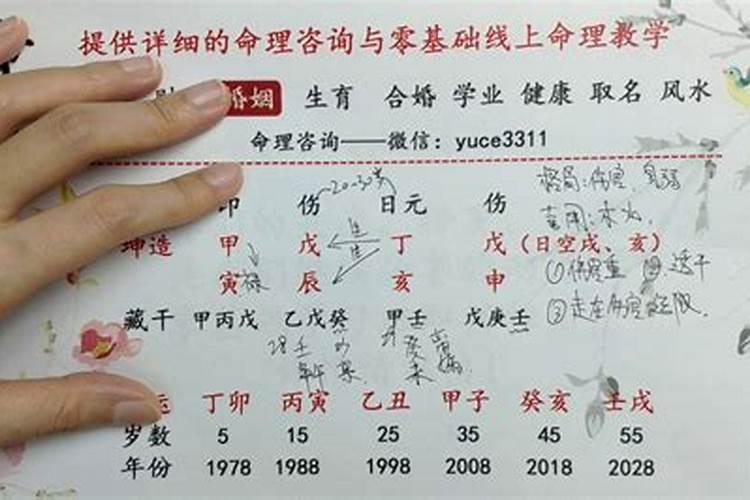 提供详细的命理咨询与零基础线上命理教学
婚姻 生育 合婚 学业 健康 取名 风水
命理咨询——微信：yuce3311
~20-30岁
印 伤 日元 伤
格局:伤官,身弱
喜用:木火,
坤造 甲 戊 生 丁 戊（日空戌、亥）
寅 禄 辰 生 亥 申
①伤官重
藏干 甲丙戊 乙戊癸 甲壬 戊庚壬
运 丁卯 丙寅 乙丑 甲子 癸亥 壬戌
岁数 5 15 25 35 45 55
年份 1978 1988 1998 2008 2018 2028